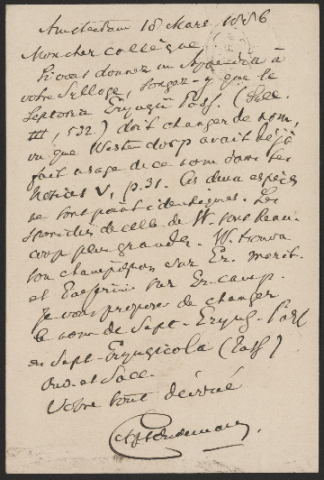 Amsterdam 18 Mars 1886
Mon cher collègue,
Si vous donnez un Appendix à
votre Sylloge, songez-y que le
Septoria Eryngii Pass. (Syll.
III, 532) doit changer de nom,
vu que Westendorp avait déjà
fait usage de ce nom dans les
Notices V, p. 31. Ces deux espèces
ne sont point identiques. Les
sporidies de celle de W. sont beau-
coup plus grandes. W. trouva
son champignon sur Er. marit.
et Passerini sur Er. camp.
Je vous propose de changer
le nom de Sept. Eryng. Pass
en Sept. Eryngicola (Pass)
Oud. et Sacc.
Votre tout dévoué
CAJAOudemans.